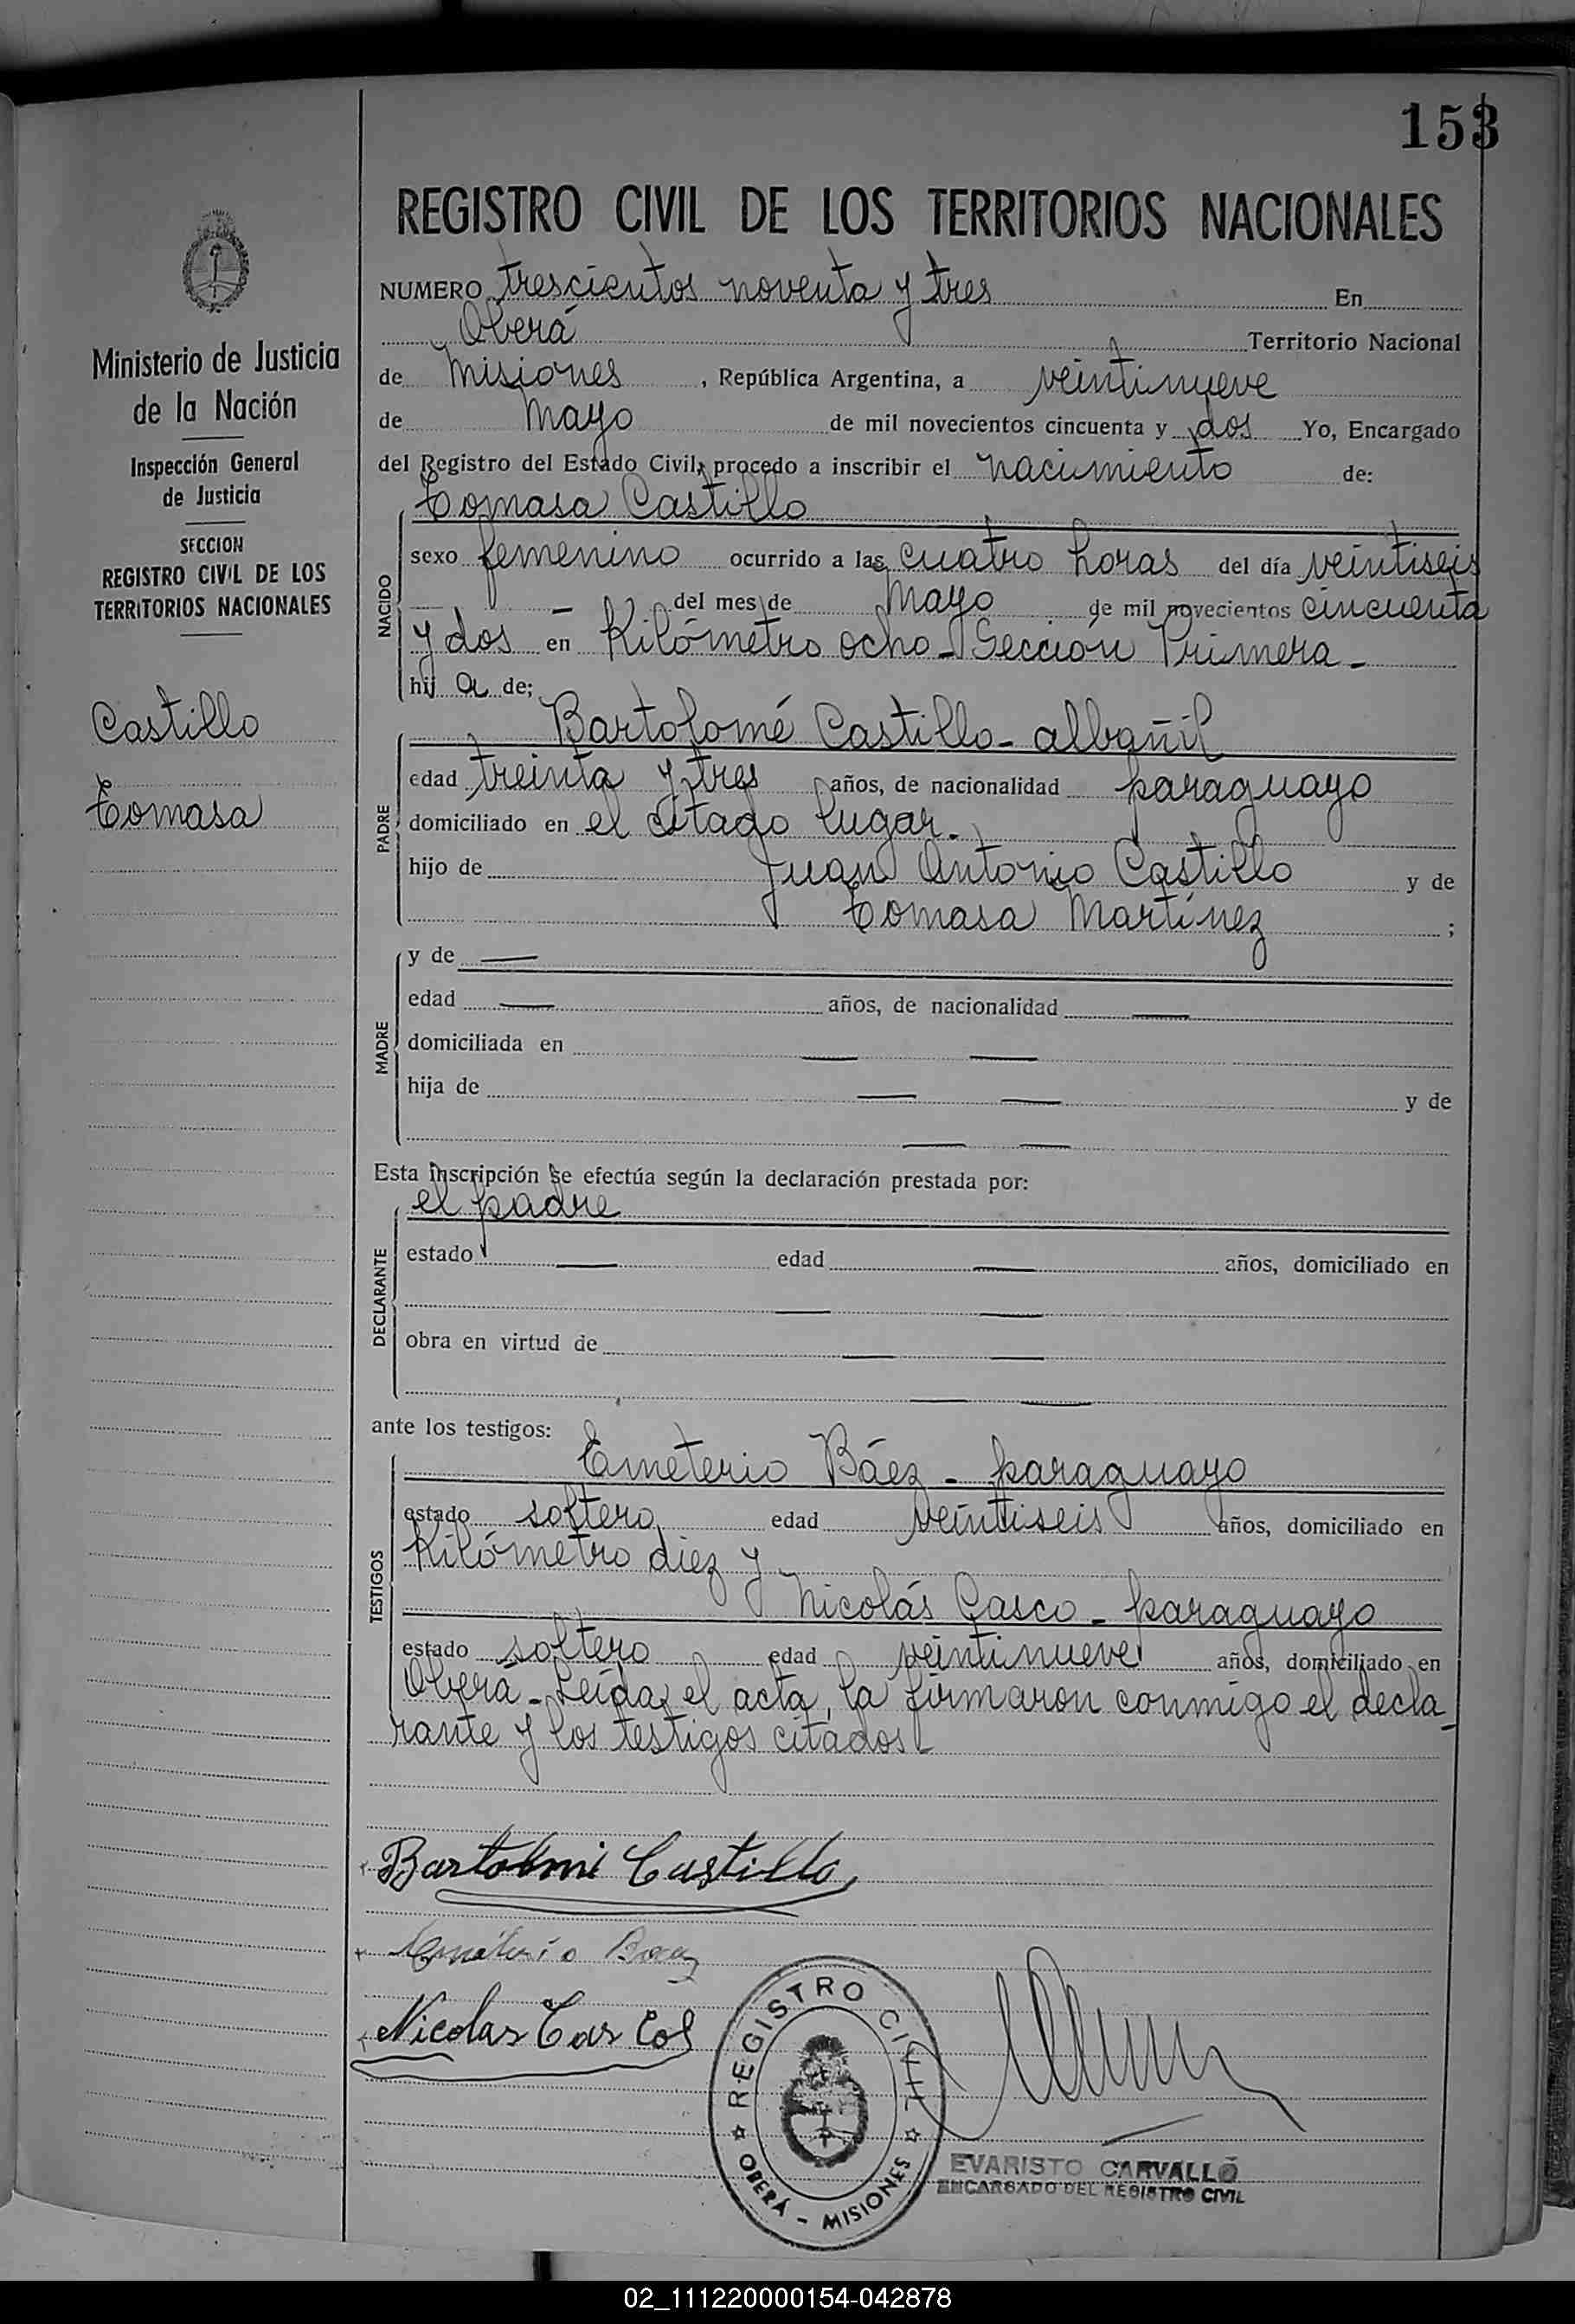 153
REGISTRO CIVIL DE LOS TERRITORIOS NACIONALES
NUMERO trescientos noventa y tres En
Oberá Territorio Nacional
de Misiones, República Argentina, a veintinueve
de Mayo de mil novecientos cincuenta y dos Yo, Encargado
del Registro del Estado Civil, procedo a inscribir el nacimiento de:
Tomasa Castillo
NACIDO
sexo femenino ocurrido a las cuatro horas del día veintiseis
— del mes de Mayo de mil novecientos cincuenta
y dos en Kilómetro ocho - Sección Primera -
hij a de;
Bartolomé Castillo - albañil
PADRE
edad treinta y tres años, de nacionalidad paraguayo
domiciliado en el citado lugar.
hijo de Juan Antonio Castillo y de
Tomasa Martínez ;
MADRE
y de —
edad — años, de nacionalidad —
domiciliada en — —
hija de — — y de
— —
Esta inscripción se efectúa según la declaración prestada por:
el padre
DECLARANTE
estado — edad — años, domiciliado en
— —
obra en virtud de — —
— —
ante los testigos:
Emeterio Báez - paraguayo
TESTIGOS
estado soltero edad veintiseis años, domiciliado en
Kilómetro diez y
Nicolás Casco - paraguayo
estado soltero edad veintinueve años, domiciliado en
Oberá - Leída el acta, la firmaron conmigo el decla-
rante y los testigos citados -
Bartolmi Castillo
Emeterio Baez
Nicolas Cascol
REGISTRO CIVIL
OBERÁ - MISIONES
EVARISTO CARVALLO
ENCARGADO DEL REGISTRO CIVIL
Ministerio de Justicia
de la Nación
Inspección General
de Justicia
SECCION
REGISTRO CIVIL DE LOS
TERRITORIOS NACIONALES
Castillo
Tomasa
02_111220000154-042878